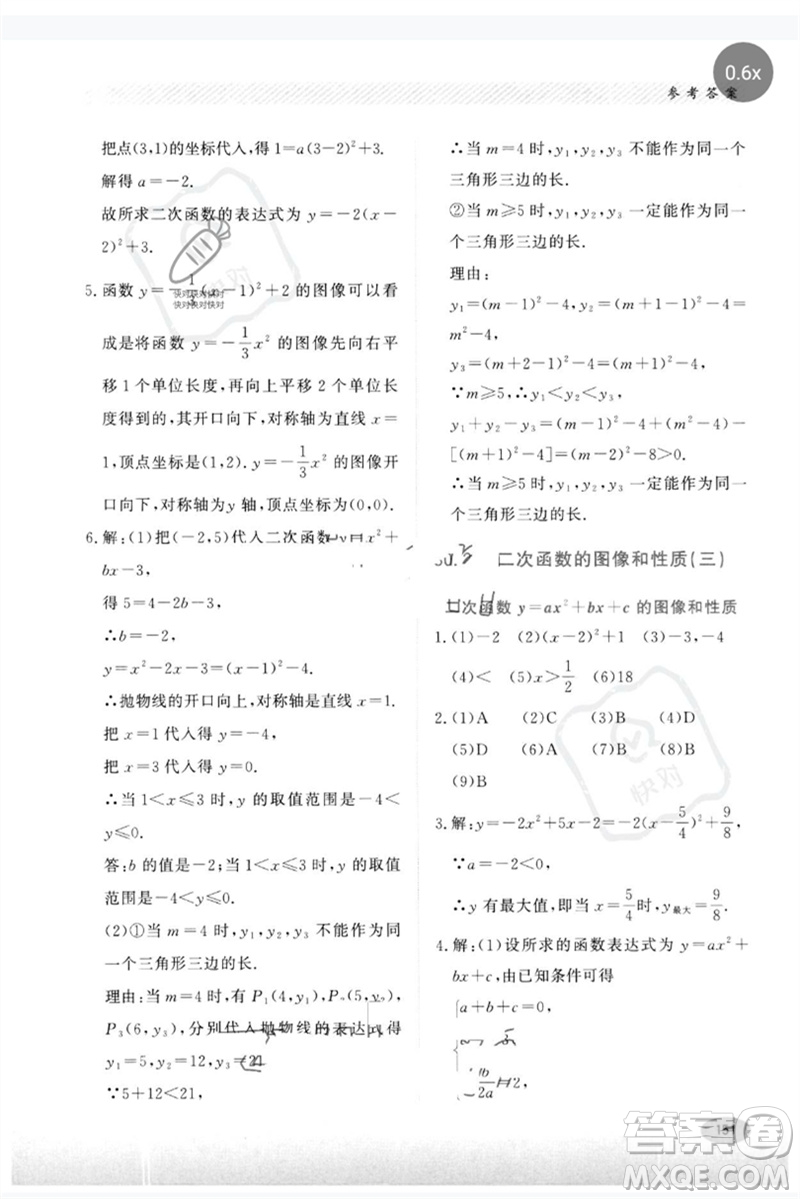 0.6x
参考答案
把点(3,1)的坐标代入,得1=a(3-2)²+3.
解得a=-2.
故所求二次函数的表达式为 y=-2(x-
2)²+3.
5.函数 y=-1/3(x-1)²+2 的图像可以看
快对快对快对
快对快对快对
成是将函数 y=-1/3x² 的图像先向右平
移1个单位长度,再向上平移2个单位长
度得到的,其开口向下,对称轴为直线 x=
1,顶点坐标是(1,2). y=-1/3x² 的图像开
口向下,对称轴为y轴,顶点坐标为(0,0).
6.解:(1)把(-2,5)代入二次函数 x²+
bx-3,
得5=4-2b-3,
∴b=-2,
y=x²-2x-3=(x-1)²-4.
∴抛物线的开口向上,对称轴是直线 x=1.
把 x=1代入得y=-4.
把 x=3代入得y=0.
∴当1<x≤3时,y的取值范围是-4<
y≤0.
答:b的值是-2;当1<x≤3时,y的取值
范围是-4<y≤0.
(2)①当m=4时,y₁,y₂,y₃不能作为同
一个三角形三边的长.
理由:当m=4时,有P₁(4,y₁),P₂(5,y₂),
P₃(6,y₃),分别代入抛物线的表达式得
y₁=5,y₂=12,y₃=21
∵5+12<21,
∴当m=4时,y₁,y₂,y₃不能作为同一个
三角形三边的长.
②当m≥5时,y₁,y₂,y₃一定能作为同一
个三角形三边的长.
理由:
y₁=(m-1)²-4,y₂=(m+1-1)²-4=
m²-4,
y₃=(m+2-1)²-4=(m+1)²-4.
∵m≥5,∴y₁<y₂<y₃.
y₁+y₂-y₃=(m-1)²-4+m²-4-
[(m+1)²-4]=(m-2)²-8>0.
∴当m≥5时,y₁,y₂,y₃一定能作为同一
个三角形三边的长.
二次函数的图像和性质(三)
二次函数 y=ax²+bx+c 的图像和性质
1.(1)-2 (2)(x-2)²+1 (3)-3,-4
(4)< (5)x>1/2 (6)18
2.(1)A (2)C (3)B (4)D
(5)D (6)A (7)B (8)B
(9)B
快对
3.解:y=-2x²+5x-2=-2(x-5/4)²+9/8,
∵a=-2<0,
∴y有最大值,即当x=5/4时,y最大=9/8.
4.解:(1)设所求的函数表达式为 y=ax²+
bx+c,由已知条件可得
a+b+c=0,
b/2a=2,
答案圈
MXQE.COM